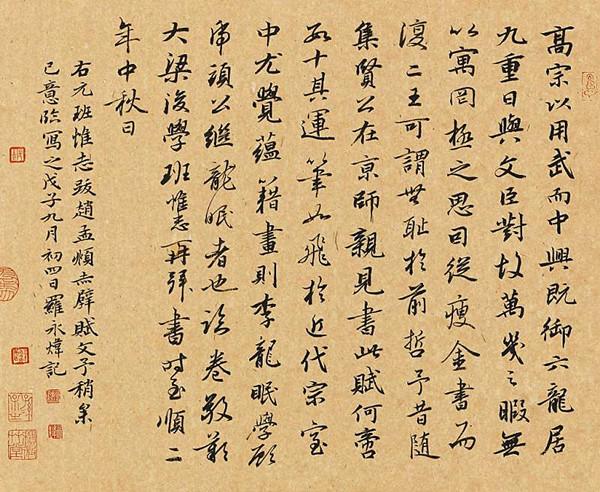 高宗以用武而中興既御六龍居
九重日與文臣對故萬幾之暇無
以寓罔極之思因從瘦金書而
復二王可謂無恥於前哲予昔隨
集賢公在京師親見書此賦何啻
數十其運筆如飛於近代宗室
中尤覺蘊籍畫則李龍眠學顧
虎頭公繼龍眠者也卷敬歎
大梁後學班惟志再拜書時至順二
年中秋日
右元班惟志跋趙孟頫赤壁賦文予稍叅
己意臨寫之戊子九月初四日羅永煒記